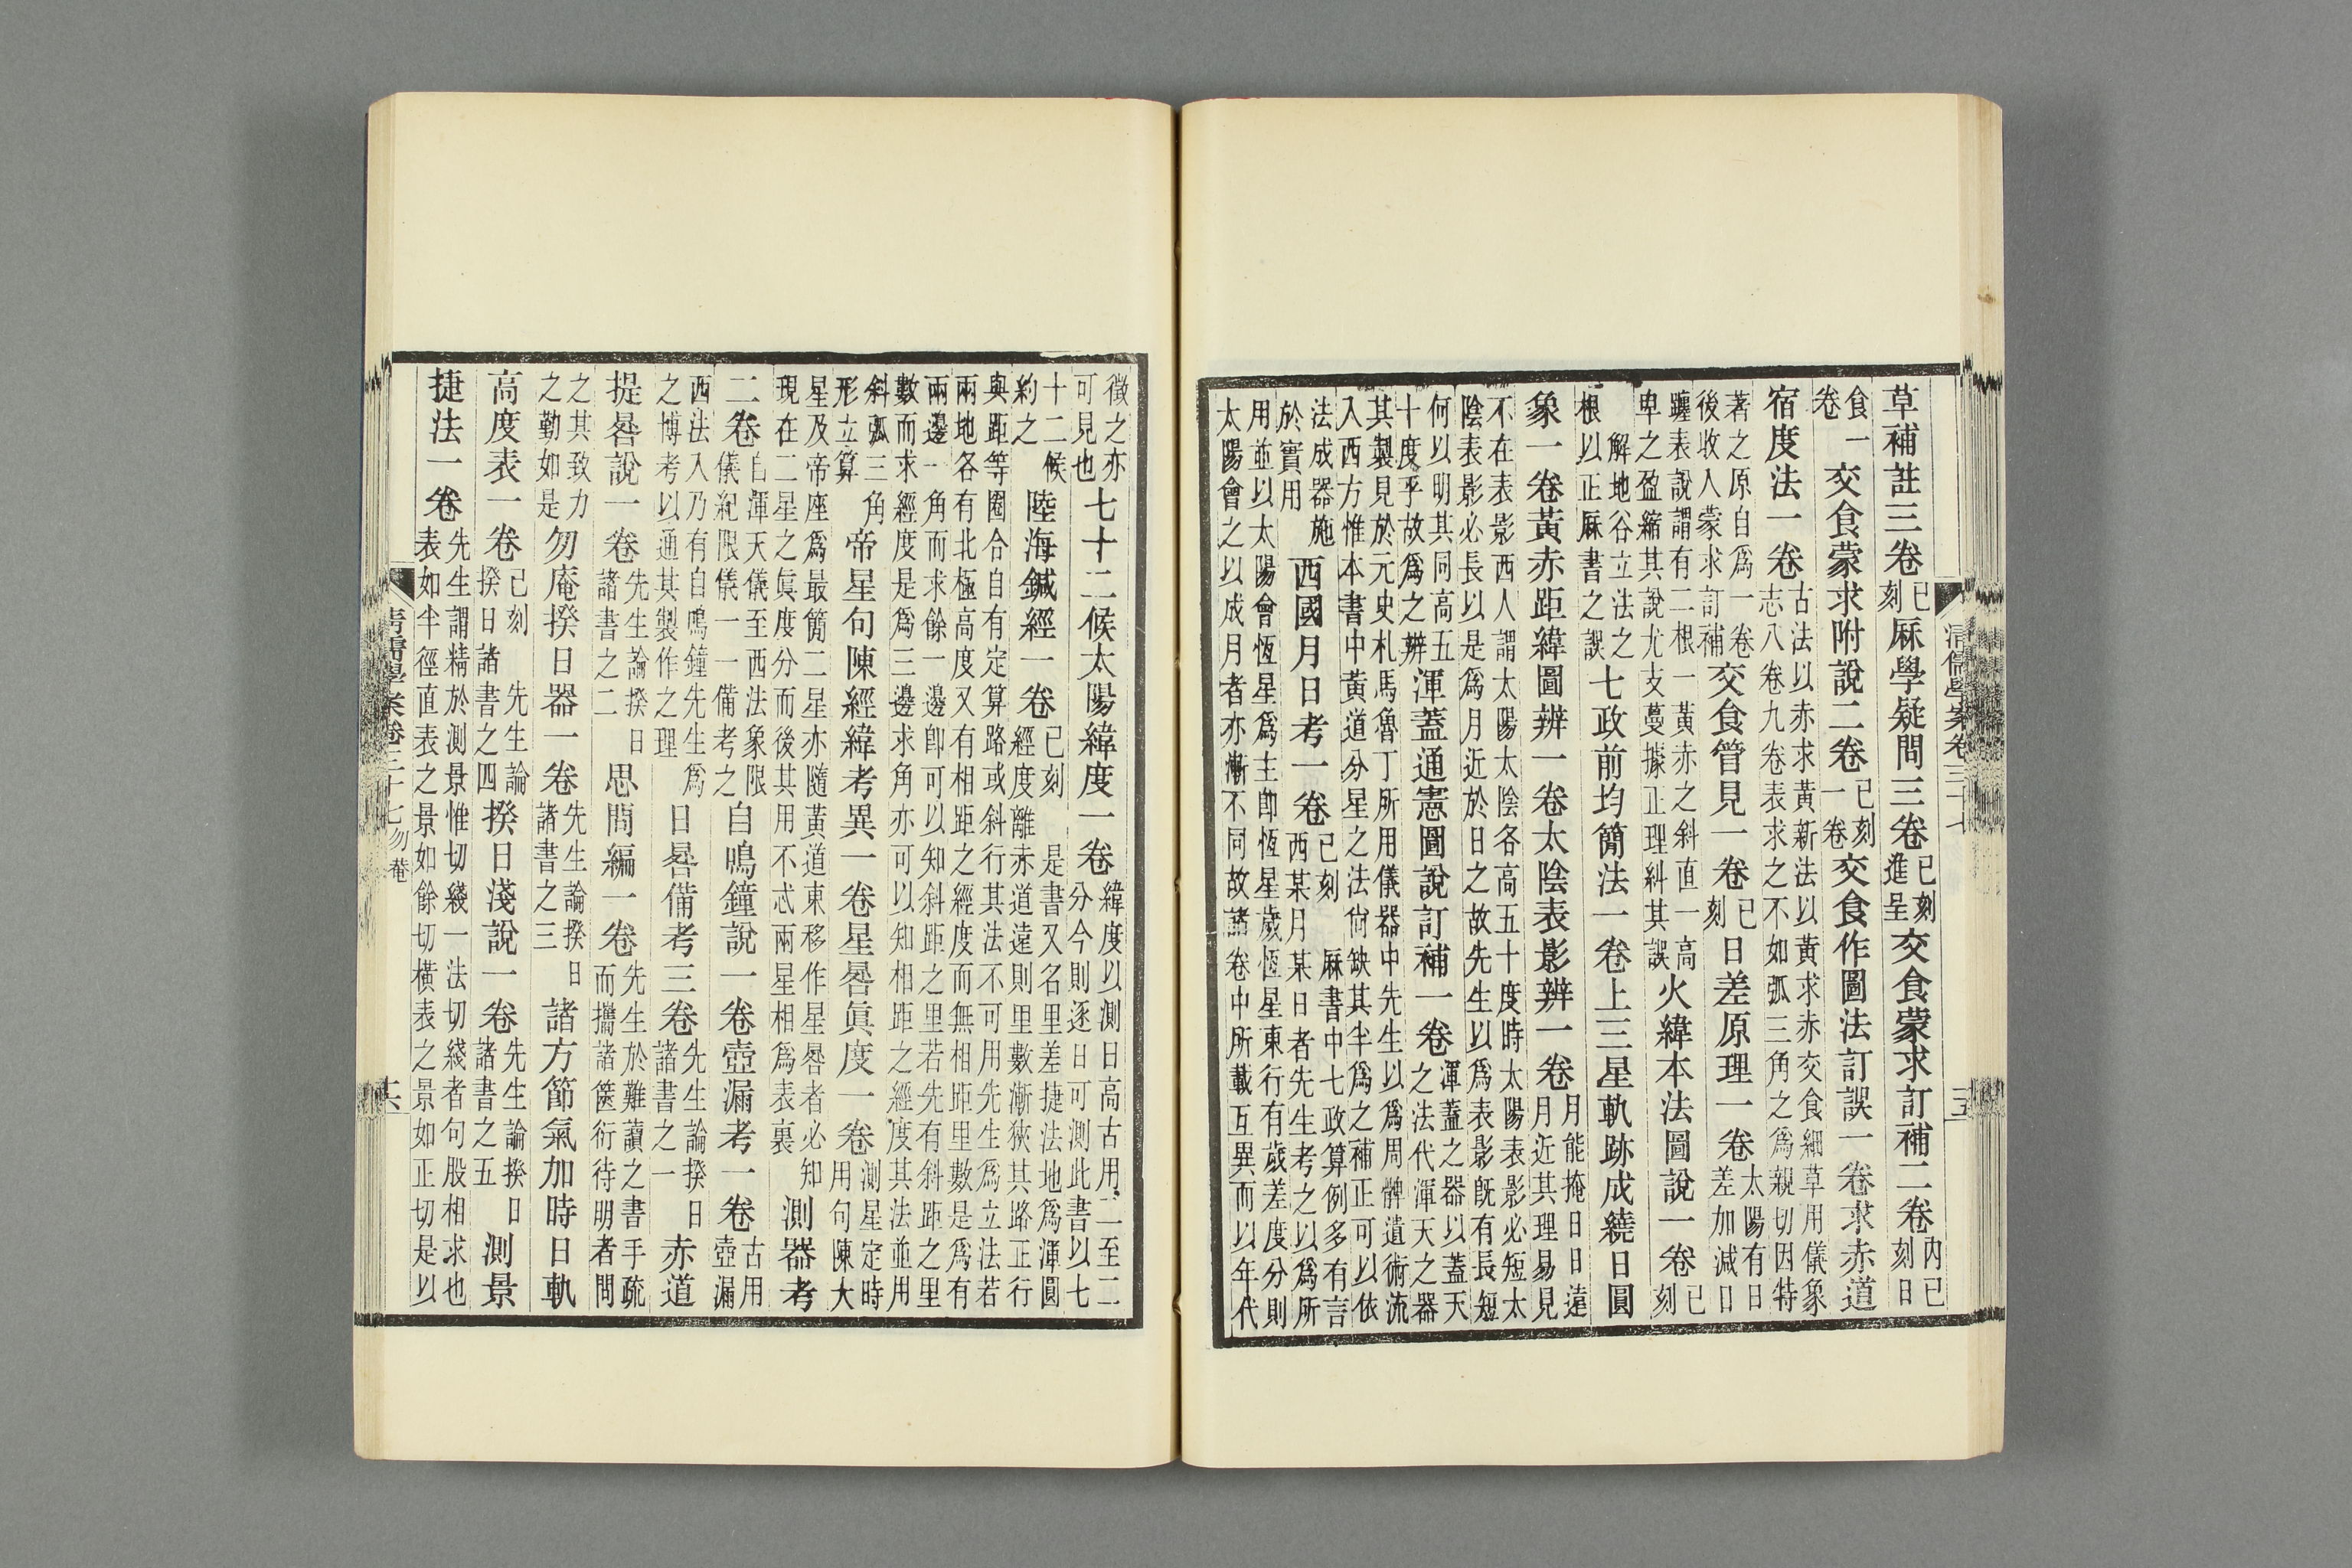 清儒學案卷三十七 十五
草補註三卷已刻厤學疑問三卷已刻進呈交食蒙求訂補二卷內已刻日
食一卷交食蒙求附說二卷已刻一卷交食作圖法訂誤一卷求赤道
宿度法一卷古法以赤求黃新法以黃求赤交食細草用儀象志八卷九卷表求之不如弧三角之爲親切因特
著之原自爲一卷後收入蒙求訂補交食管見一卷已刻日差原理一卷太陽有日差加減日
躔表說謂有二根一黃赤之斜直一高卑之盈縮其說尤支蔓據正理糾其誤火緯本法圖說一卷已刻
解地谷立法之根以正厤書之誤七政前均簡法一卷上三星軌跡成繞日圓
象一卷黃赤距緯圖辨一卷太陰表影辨一卷月能掩日日遠月近其理易見
不在表影西人謂太陽太陰各高五十度時太陽表影必短太陰表影必長以是爲月近於日之故先生以爲表影既有長短
何以明其同高五十度乎故爲之辨渾蓋通憲圖說訂補一卷渾蓋之器以蓋天之法代渾天之器
其製見於元史札馬魯丁所用儀器中先生以爲周髀遺術流入西方惟本書中黃道分星之法尚缺其半爲之補正可以依
法成器施於實用西國月日考一卷已刻厤書中七政算例多有言西某月某日者先生考之以爲所
用並以太陽會恆星爲主卽恆星歲恆星東行有歲差度分則太陽會之以成月者亦漸不同故諸卷中所載互異而以年代
徵之亦可見也七十二候太陽緯度一卷緯度以測日高古用二至二分今則逐日可測此書以七
十二候約之陸海鍼經一卷已刻是書又名里差捷法地爲渾圓經度離赤道遠則里數漸狹其路正行
與距等圈合自有定算路或斜行其法不可用先生爲立法若兩地各有北極高度又有相距之經度而無相距里數是爲有
兩邊一角而求餘一邊卽可以知斜距之里若先有斜距之里數而求經度是爲三邊求角亦可以知相距之經度其法並用
斜弧三角形立算帝星句陳經緯考異一卷星晷眞度一卷測星定時用句陳大
星及帝座爲最簡二星亦隨黃道東移作星晷者必知現在二星之眞度分而後其用不忒兩星相爲表裏測器考
二卷自渾天儀至西法象限儀紀限儀一一備考之自鳴鐘說一卷壺漏考一卷古用壺漏
西法入乃有自鳴鐘先生爲之博考以通其製作之理日晷備考三卷先生論揆日諸書之一赤道
提晷說一卷先生論揆日諸書之二思問編一卷先生於難讀之書手疏而攜諸篋衍待明者問
之其致力之勤如是勿庵揆日器一卷先生論揆日諸書之三諸方節氣加時日軌
高度表一卷已刻先生論揆日諸書之四揆日淺說一卷先生論揆日諸書之五測景
捷法一卷先生謂精於測景惟切綫一法切綫者句股相求也表如半徑直表之景如餘切橫表之景如正切是以
清儒學案卷三十七 勿菴 十六